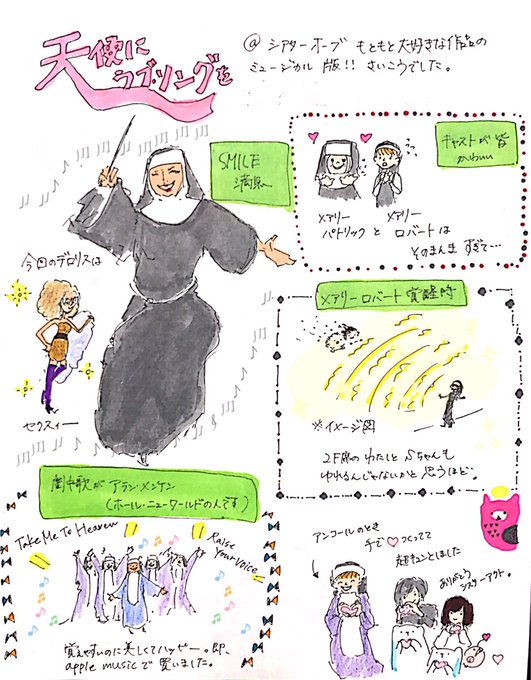 天使に
ラブ・ソングを
@ シアターオーブ もともと大好きな作品の
ミュージカル 版!! さいこうでした。
SMILE
満点
キャストが皆
かわいい
メアリー
パトリックと
メアリー
ロバートは
そのまんますぎて…
今回のデロリスは
セクスィー
メアリーロバート覚醒時
※イメージ図
2F席のわたしとSちゃんも
ゆれるんじゃないかと思うほど。
劇中歌がアラン・メンケン
(ホール・ニューワールドの人です)
Take Me To Heaven
Raise
Your Voice
覚えやすいのに美しくてハッピー。即、
apple musicで買いました。
アンコールのとき
手で♡つくってて
超キュンとしました
ありがとう
シスターアクト。